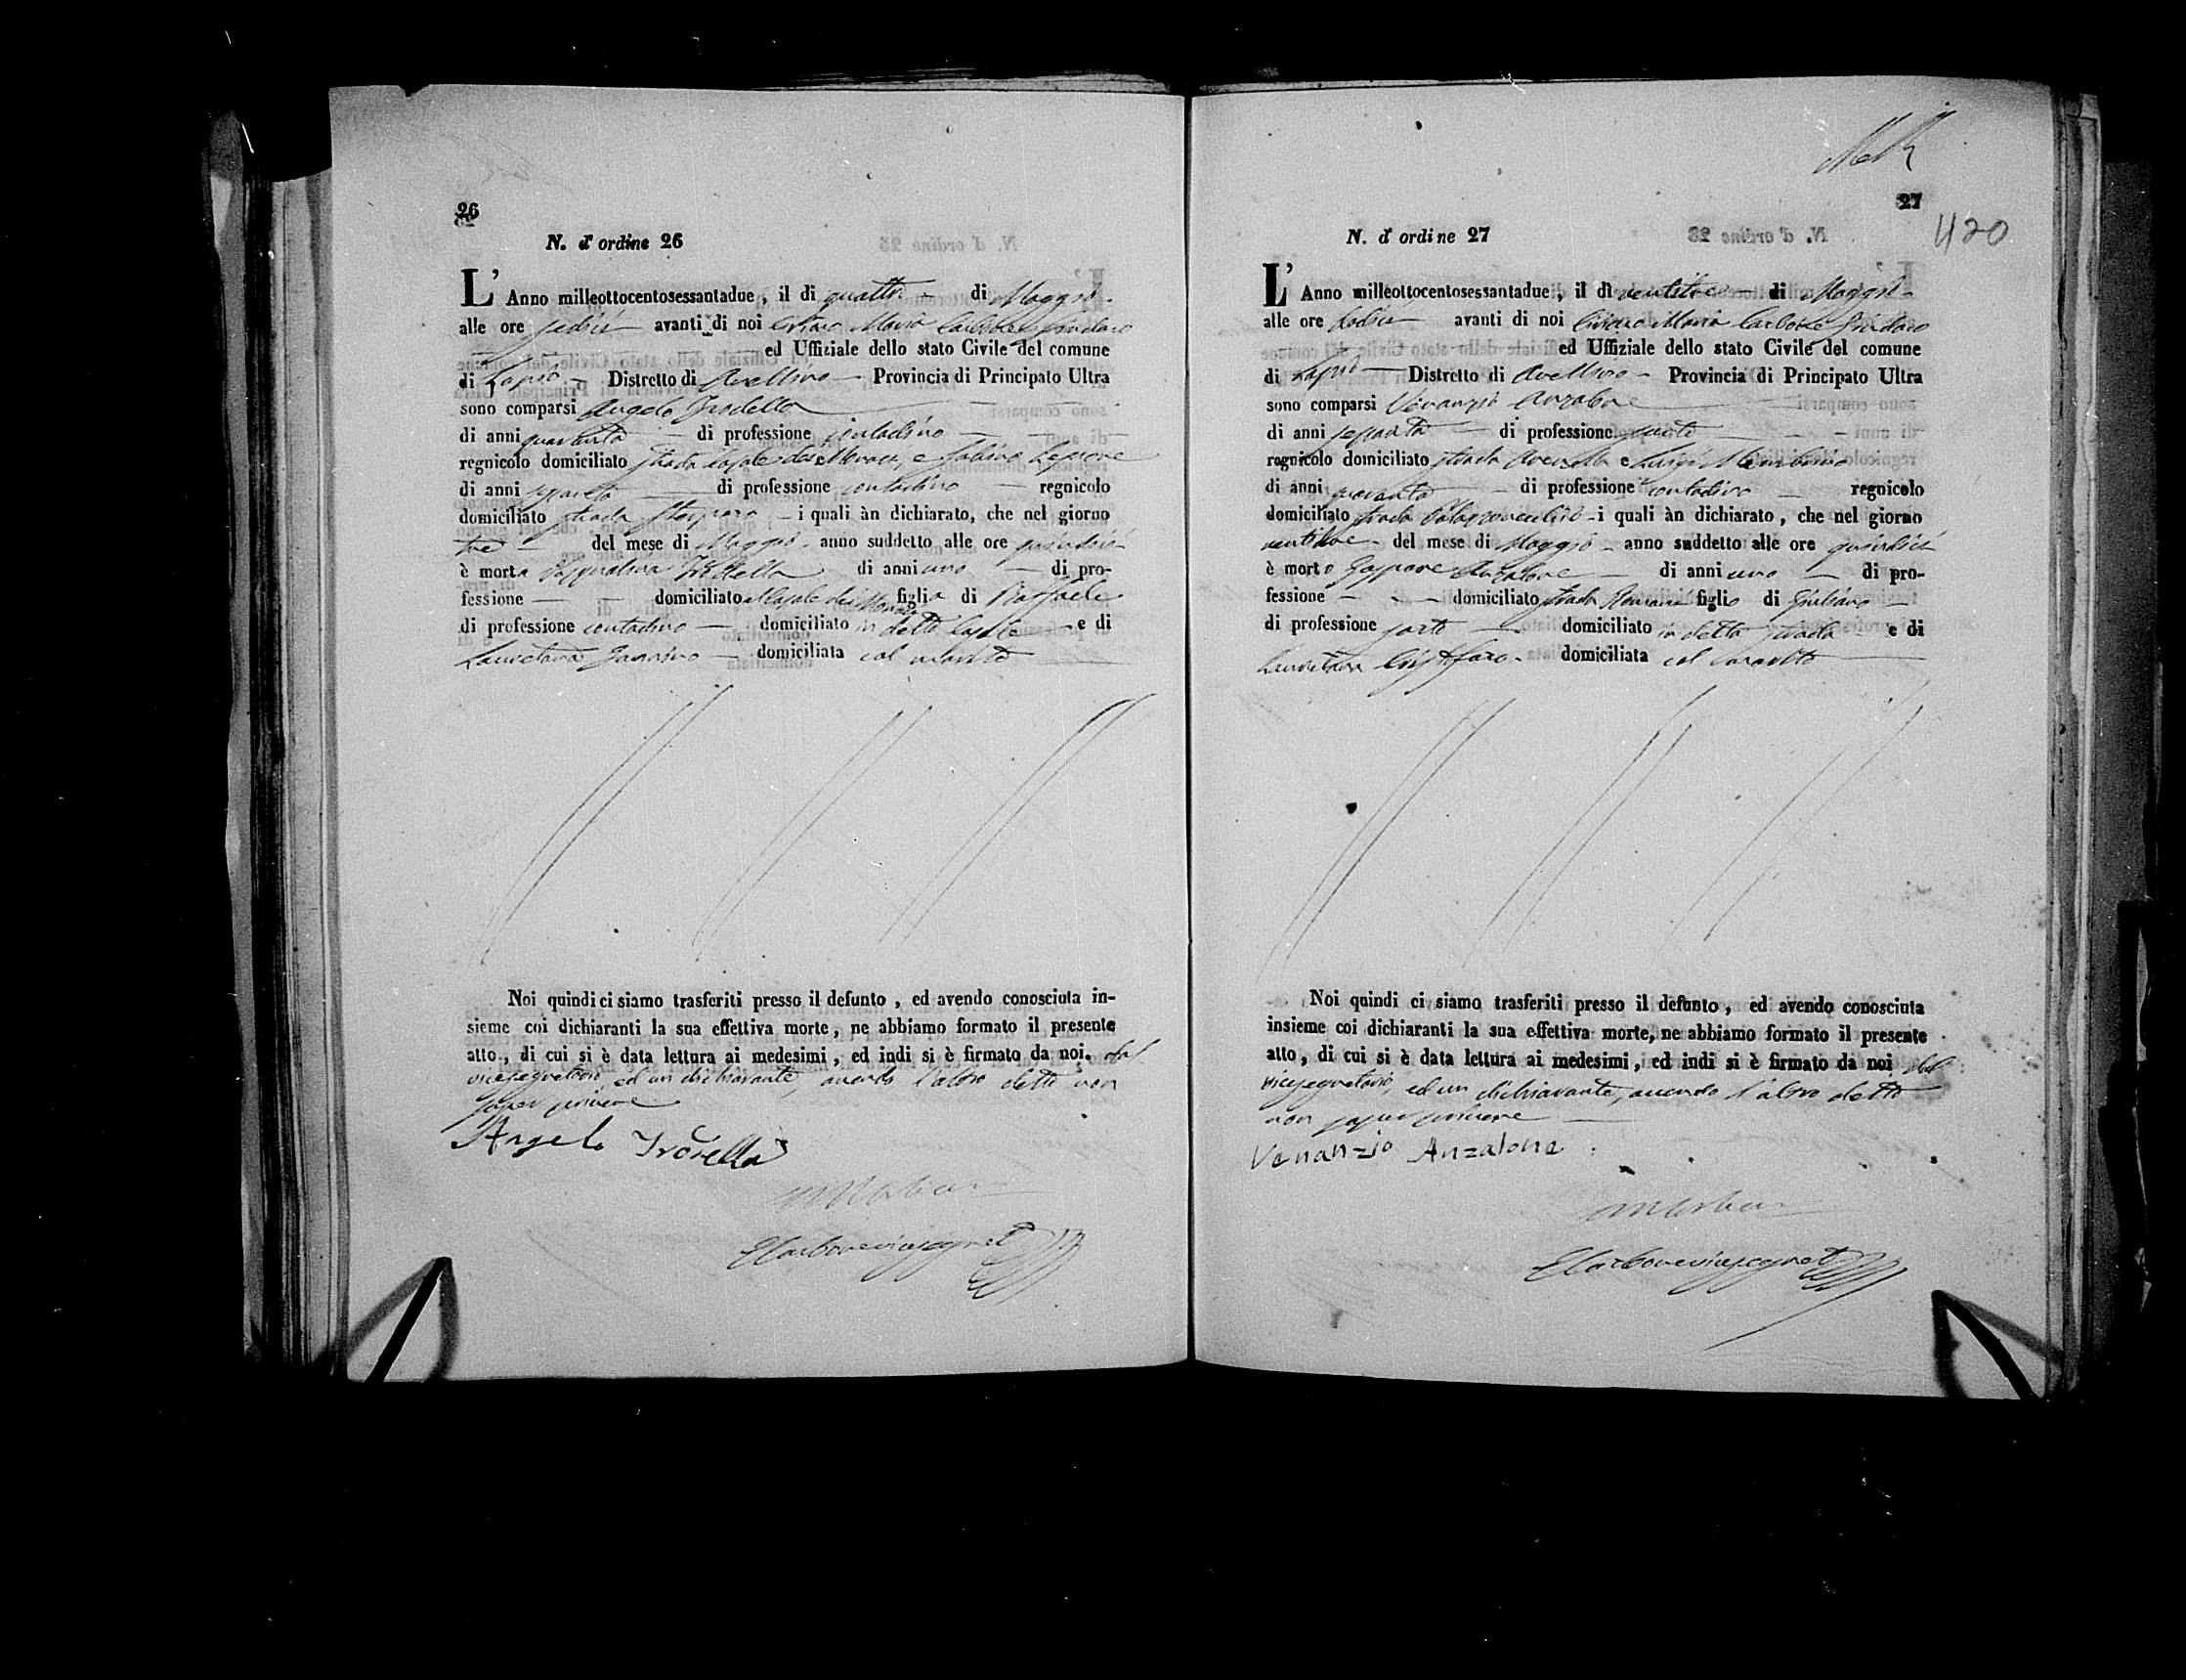 26
N. d' ordine 26
L' Anno milleottocentosessantadue, il di quattro di Maggio
alle ore sedici avanti di noi Maria Carbone Sindaco
ed Uffiziale dello stato Civile del comune
di Lapio Distretto di Avellino Provincia di Principato Ultra
sono comparsi Angelo Trodella
di anni quaranta di professione contadino
regnicolo domiciliato strada Casale dei Monaci, e Sabino
di anni sessanta di professione contadino regnicolo
domiciliato strada i quali àn dichiarato, che nel giorno
tre del mese di Maggio anno suddetto alle ore quindici
è morta Pasqualina Trodella di anni uno di pro-
fessione domiciliato Casale dei Monaci figlia di Raffaele
di professione contadino domiciliato in detto Casale e di
Lauretana domiciliata col marito
Noi quindi ci siamo trasferiti presso il defunto, ed avendo conosciuta in-
sieme coi dichiaranti la sua effettiva morte, ne abbiamo formato il presente
atto, di cui si è data lettura ai medesimi, ed indi si è firmato da noi, dal
vicesegretario, ed un dichiarante, avendo l'altro detto non
saper scrivere
Angelo Trodella
27
420
N. d' ordine 27
L' Anno milleottocentosessantadue, il di ventitre di Maggio
alle ore dodici avanti di noi Maria Carbone Sindaco
ed Uffiziale dello stato Civile del comune
di Lapio Distretto di Avellino Provincia di Principato Ultra
sono comparsi Venanzio Anzalone
di anni sessanta di professione sarto
regnicolo domiciliato strada e Luigi
di anni quaranta di professione contadino regnicolo
domiciliato strada i quali àn dichiarato, che nel giorno
del mese di Maggio anno suddetto alle ore quindici
è morto Gaspare Anzalone di anni uno di pro-
fessione domiciliato strada figlio di Giuliano
di professione sarto domiciliato in detta strada e di
Lauretana domiciliata col marito
Noi quindi ci siamo trasferiti presso il defunto, ed avendo conosciuta
insieme coi dichiaranti la sua effettiva morte, ne abbiamo formato il presente
atto, di cui si è data lettura ai medesimi, ed indi si è firmato da noi dal
vicesegretario, ed un dichiarante, avendo l'altro detto
non saper scrivere
Venanzio Anzalone